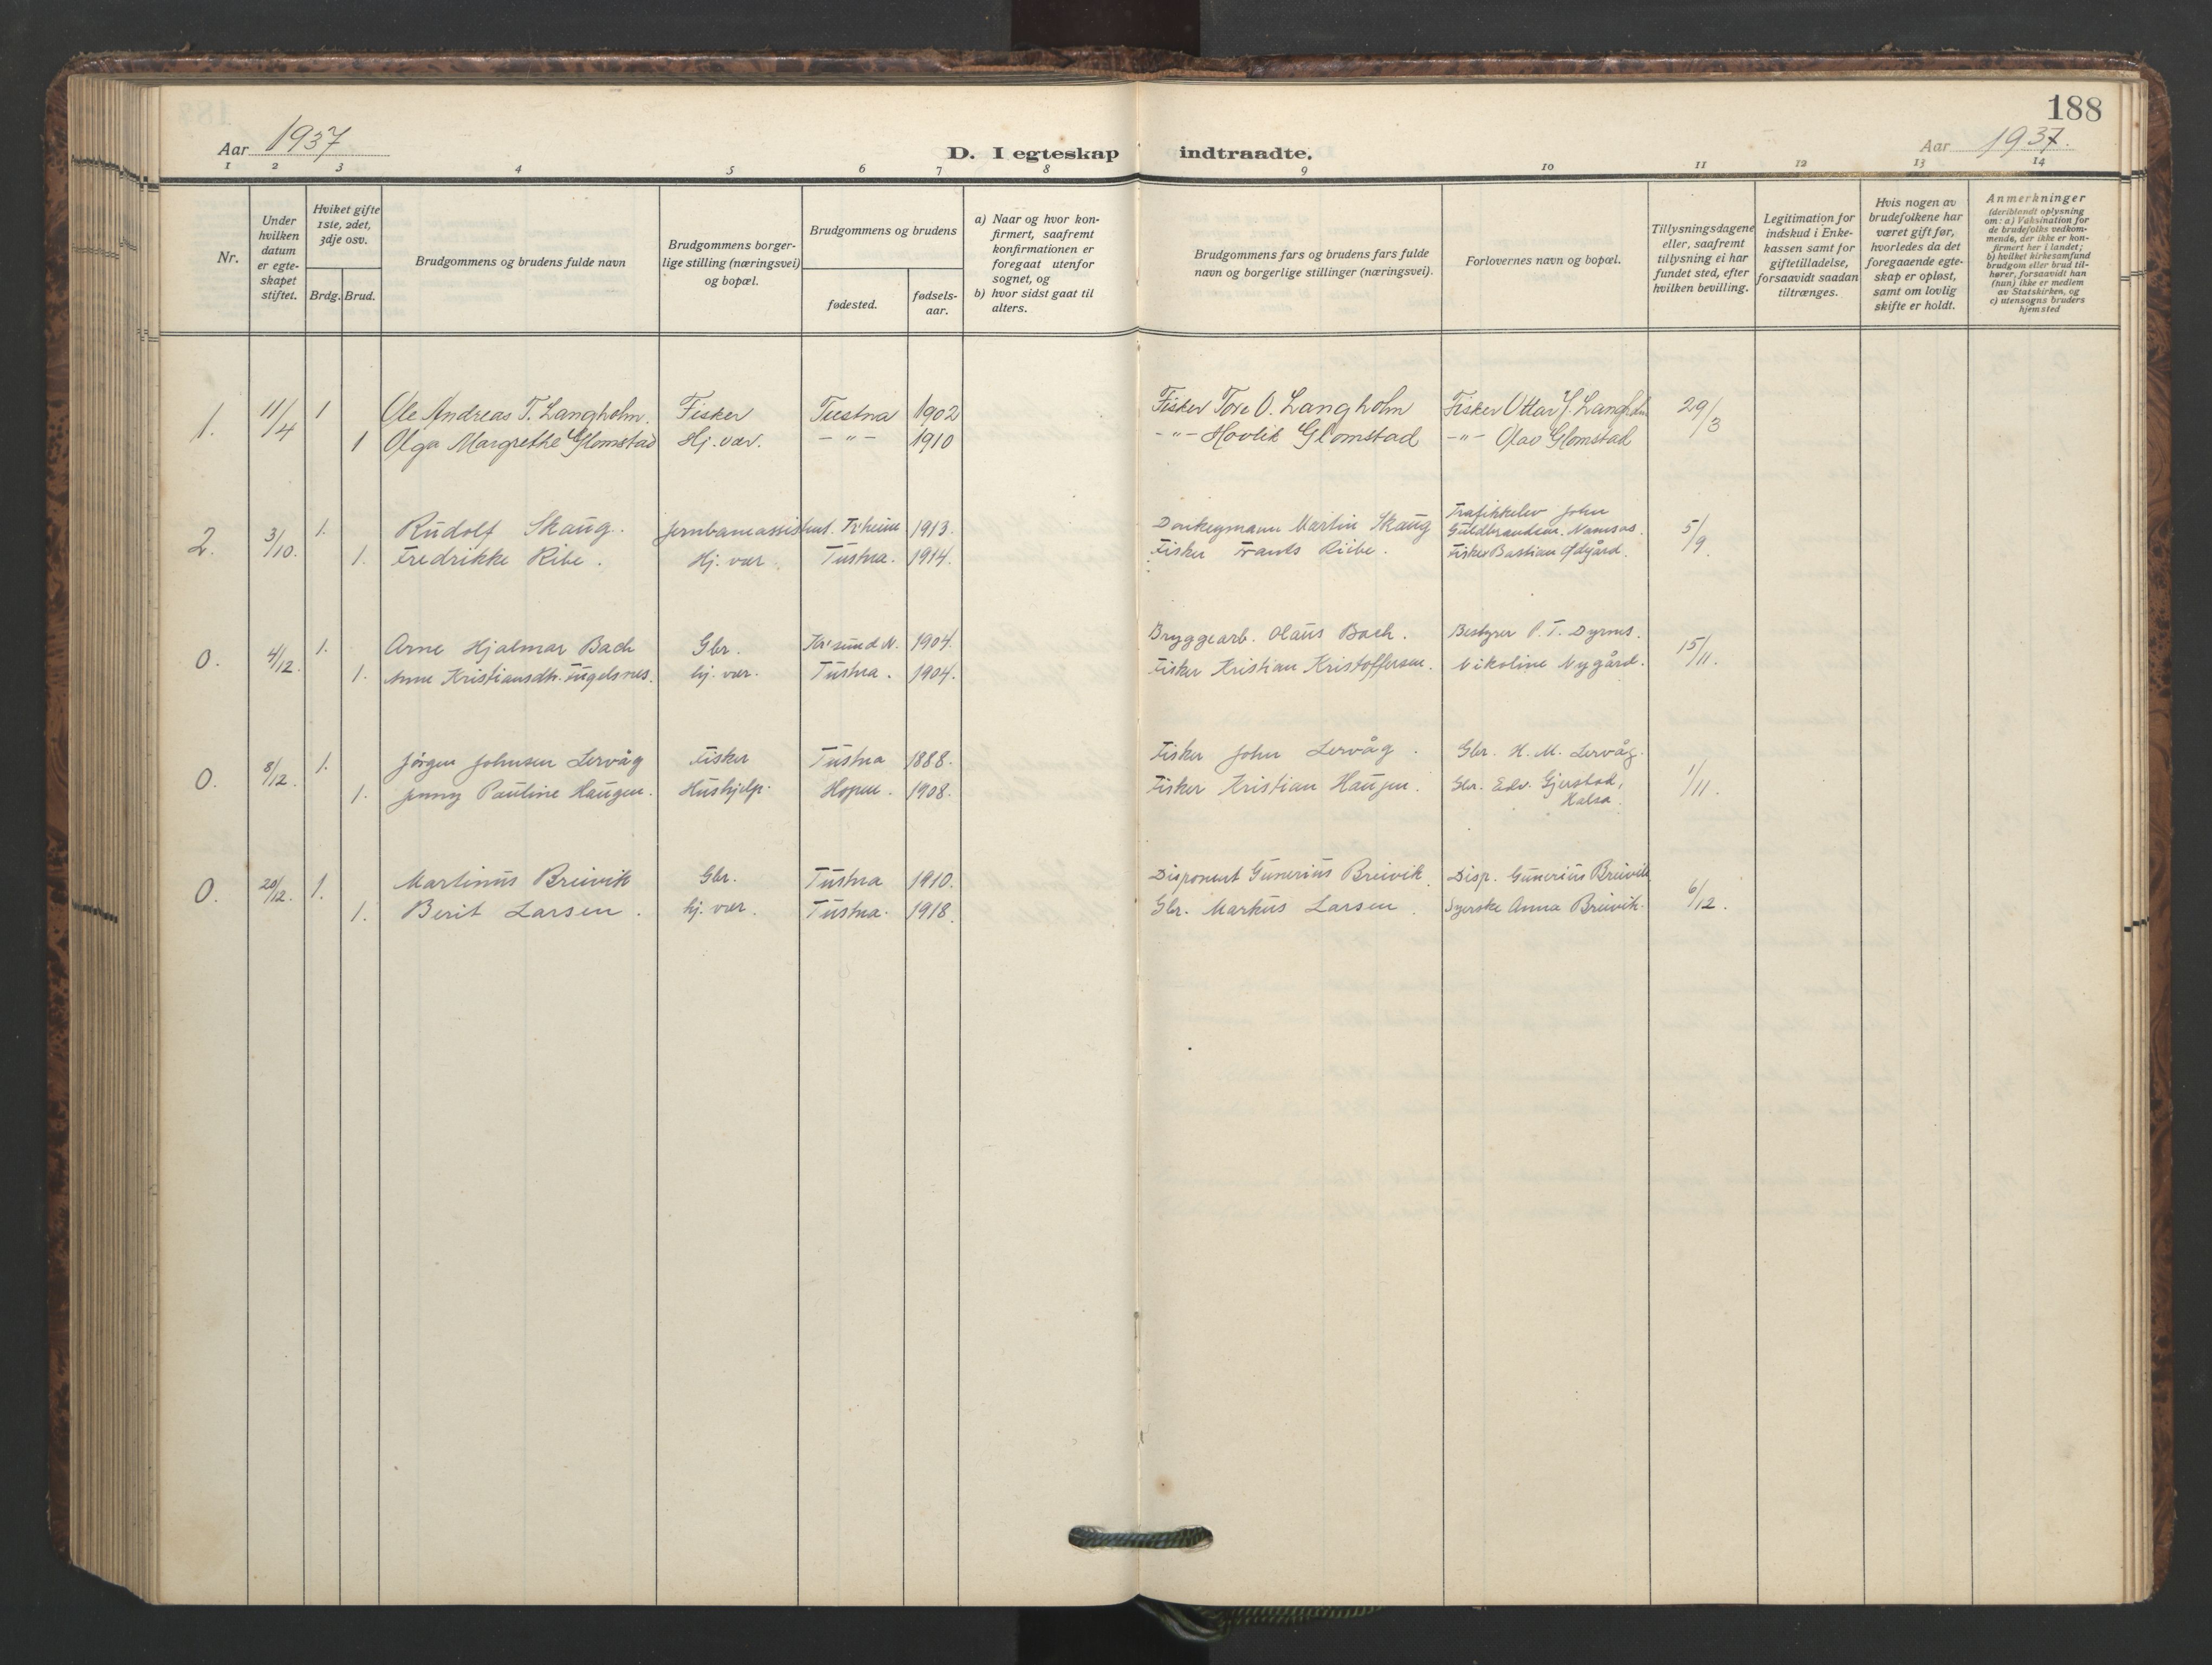 188
Aar 1937
D. I egteskap indtraadte.
Aar 1937.
1 2 3 4 5 6 7 8 9 10 11 12 13 14
Nr.
Under hvilken datum er egte-skapet stiftet.
Hviket gifte 1ste, 2det, 3dje osv.
Brdg. Brud.
Brudgommens og brudens fulde navn
Brudgommens borger-
lige stilling (næringsvei)
og bopæl.
Brudgommens og brudens
fødested.
fødsels-
aar.
a) Naar og hvor kon-
firmert, saafremt
konfirmationen er
foregaat utenfor
sognet, og
b) hvor sidst gaat til
alters.
Brudgommens fars og brudens fars fulde
navn og borgerlige stillinger (næringsvei).
Forlovernes navn og bopæl.
Tillysningsdagene
eller, saafremt
tillysning ei har
fundet sted, efter
hvilken bevilling.
Legitimation for
indskud i Enke-
kassen samt for
giftetilladelse,
forsaavidt saadan
tiltrænges.
Hvis nogen av
brudefolkene har
været gift før,
hvorledes da det
foregaaende egte-
skap er opløst,
samt om lovlig
skifte er holdt.
Anmerkninger
(deriblandt oplysning
om: a) Vaksination for
de brudefolks vedkom-
mende, der ikke er kon-
firmert her i landet;
b) hvilket kirkesamfund
brudgom eller brud til-
hører, forsaavidt han
(hun) ikke er medlem
av Statskirken, og
c) utensogns bruders
hjemsted
1. 11/4 1 Ole Andreas T. Langholm. Fisker Tustna 1902 Fisker Tore O. Langholm Fisker Ottar J. Langholm 29/3
1 Olga Margrethe Glomstad Hj. vær. -"- 1910 -"- Hovlik Glomstad -"- Olav Glomstad
2. 3/10. 1. Rudolf Skaug. Jernbaneassistent. Tr.heim 1913. Donkeymann Martin Skaug Trafikkelev John Guldbrandsen. Namsos. 5/9.
1. Fredrikke Ribe. Hj. vær. Tustna. 1914. Fisker Frants Ribe. Fisker Bastian Ødgård.
0. 4/12. 1. Arne Hjalmar Bach Gbr. Kr'sund N. 1904. Bryggearb. Olaus Bach. Bestyrer P. T. Dyrnes. 15/11.
1. Anne Kristiansdtr. Fugelsnes. hj. vær. Tustna. 1904. Fisker Kristian Kristoffersen. Nikoline Nygård.
0. 8/12. 1. Jørgen Johnsen Lervåg Fisker Tustna 1888. Fisker John Lervåg. Gbr. H. M. Lervåg. 1/11.
1. Jenny Pauline Haugen. Hushjelp. Hopen. 1908. Fisker Kristian Haugen. Gbr. Edv. Gjerstad, Halsa.
0. 20/12. 1. Martinus Breivik Gbr. Tustna 1910. Disponent Gunerius Breivik. Disp. Gunerius Breivik 6/12.
1. Berit Larsen. hj. vær. Tustna. 1918. Gbr. Markus Larsen. Syerske Anna Breivik.